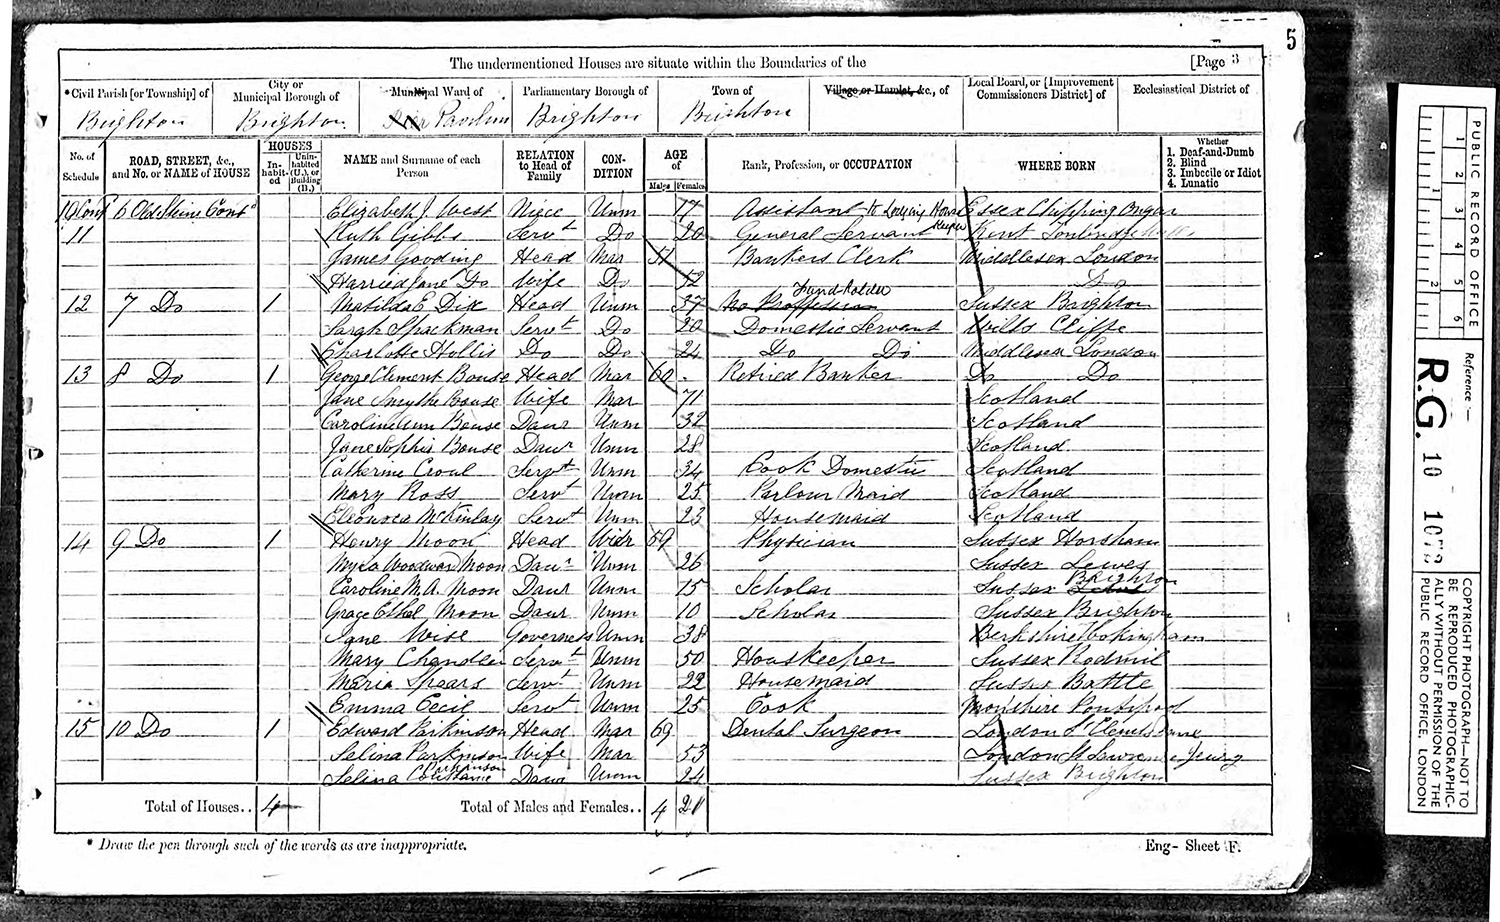 5
The undermentioned Houses are situate within the Boundaries of the [Page 3
*Civil Parish [or Township] of City or Municipal Borough of Municipal Ward of Parliamentary Borough of Town of Village or Hamlet, &c., of Local Board, or [Improvement Commissioners District] of Ecclesiastical District of
Brighton Brighton Pavilion Brighton Brighton
No. of Schedule ROAD, STREET, &c., and No. or NAME of HOUSE HOUSES In-habit-ed Unin-habited (U.), or Building (B.) NAME and Surname of each Person RELATION to Head of Family CON-DITION AGE of Males Females Rank, Profession, or OCCUPATION WHERE BORN Whether 1. Deaf-and-Dumb 2. Blind 3. Imbecile or Idiot 4. Lunatic
10 Cont 6 Old Steine Cont Elizabeth J. West Niece Unm 17 Assistant to Lodging House Keeper Essex Chipping Ongar
11 Ruth Gibbs Servt Do 20 General Servant Kent
James Gooding Head Mar 51 Bankers Clerk Middlesex London
Harried Jane Do Wife Do Do
12 7 Do 1 Matilda E. Dix Head Unm 37 No Profession Fundholder Sussex Brighton
Sarah Spackman Servt Do 20 Domestic Servant Wilts Cliffe
Charlotte Hollis Do Do 24 Do Do Middlesex London
13 8 Do 1 George Clement Bouse Head Mar 60 Retired Banker Do Do
Jane Smythe Bouse Wife Mar 71 Scotland
Caroline Ann Bouse Daur Unm 32 Scotland
Jane Sophia Bouse Daur Unm 28 Scotland
Catherine Croul Servt Unm 34 Cook Domestic Scotland
Mary Ross Servt Unm 25 Parlour Maid Scotland
Eleonora McKinlay Servt Unm 23 Housemaid Scotland
14 9 Do 1 Henry Moon Head Widr 59 Physician Sussex Horsham
Woodward Moon Daur Unm 26 Sussex Lewes
Caroline M. A. Moon Daur Unm 15 Scholar Sussex Lewes Brighton
Grace Ethel Moon Daur Unm 10 Scholar Sussex Brighton
Jane Wise Governess Unm 38 Berkshire Wokingham
Mary Chandler Servt Unm 50 Houskeeper Sussex Rodmil
Maria Spears Servt Unm 22 Housemaid Sussex Battle
Emma Cecil Servt Unm 25 Cook Monshire Pontipool
15 10 Do 1 Edward Parkinson Head Mar 69 Dental Surgeon London St Clements Dane
Selina Parkinson Wife Mar 53 London St Lawrence Jewry
Selina Constance Parkinson Daur Unm 24 Sussex Brighton
Total of Houses.. 4 Total of Males and Females.. 4 21
* Draw the pen through such of the words as are inappropriate. Eng- Sheet F.
PUBLIC RECORD OFFICE
1 2 3 4 5 6
1 2
Reference:-
R.G. 10
COPYRIGHT PHOTOGRAPH—NOT TO BE REPRODUCED PHOTOGRAPHIC-ALLY WITHOUT PERMISSION OF THE PUBLIC RECORD OFFICE, LONDON